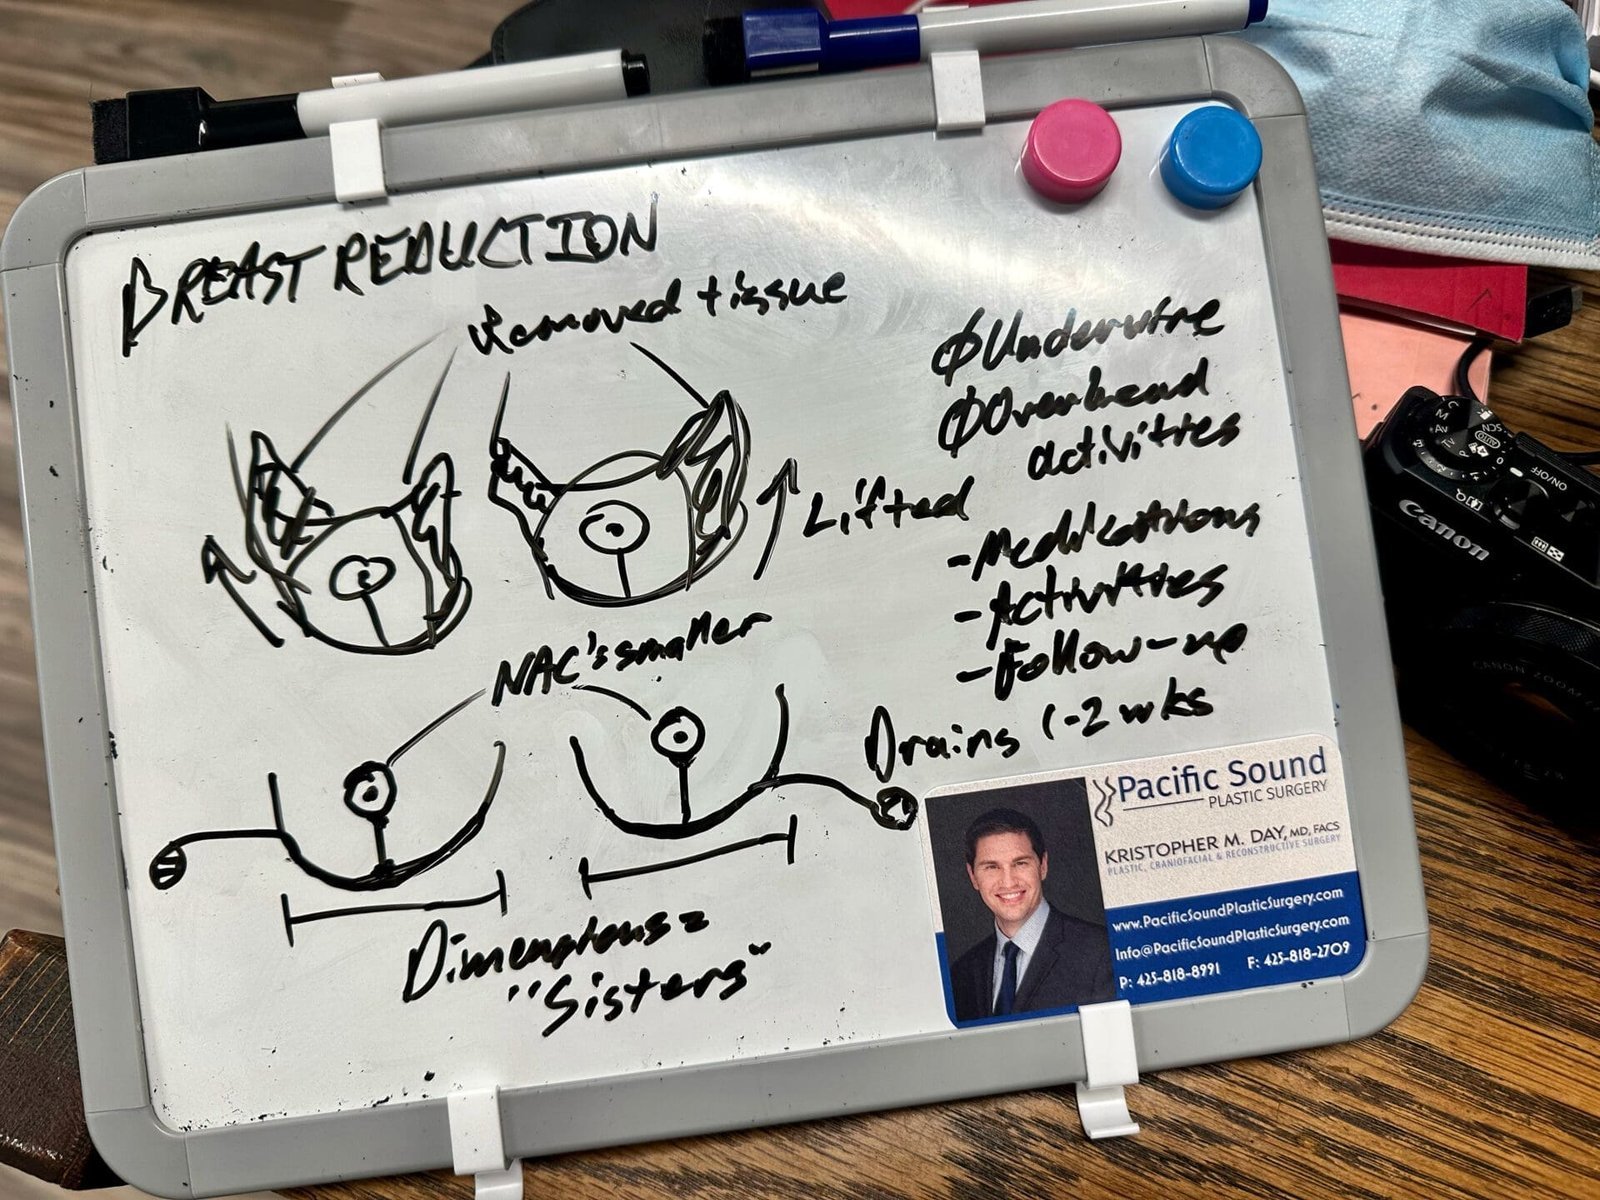 BREAST REDUCTION
removed tissue
Lifted
NAC's smaller
Dimensions =
"Sisters"
Ø Underwire
Ø Overhead
activities
- Medications
- Activities
- Follow-up
Drains 1-2 wks
Pacific Sound
PLASTIC SURGERY
KRISTOPHER M. DAY, MD, FACS
PLASTIC, CRANIOFACIAL & RECONSTRUCTIVE SURGERY
www.PacificSoundPlasticSurgery.com
Info@PacificSoundPlasticSurgery.com
P: 425-818-8991 F: 425-818-2709
Canon
ON/OFF
AUTO
SCN
M
Av
Tv
CANON ZOOM